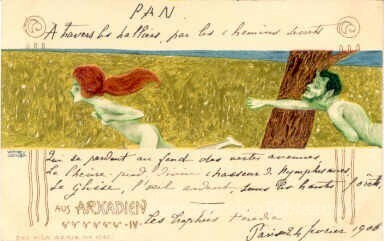 PAN
A travers les halliers, par les chemins secrets
Qui se perdent au fond des vertes avenues
Le chèvre-pied divin chasseur de Nymphes nues
Se glisse, l'oeil ardent, sous les hautes forêts
AUS ARKADIEN
IV
Les Trophées Heredia
Paris 24 février 1900